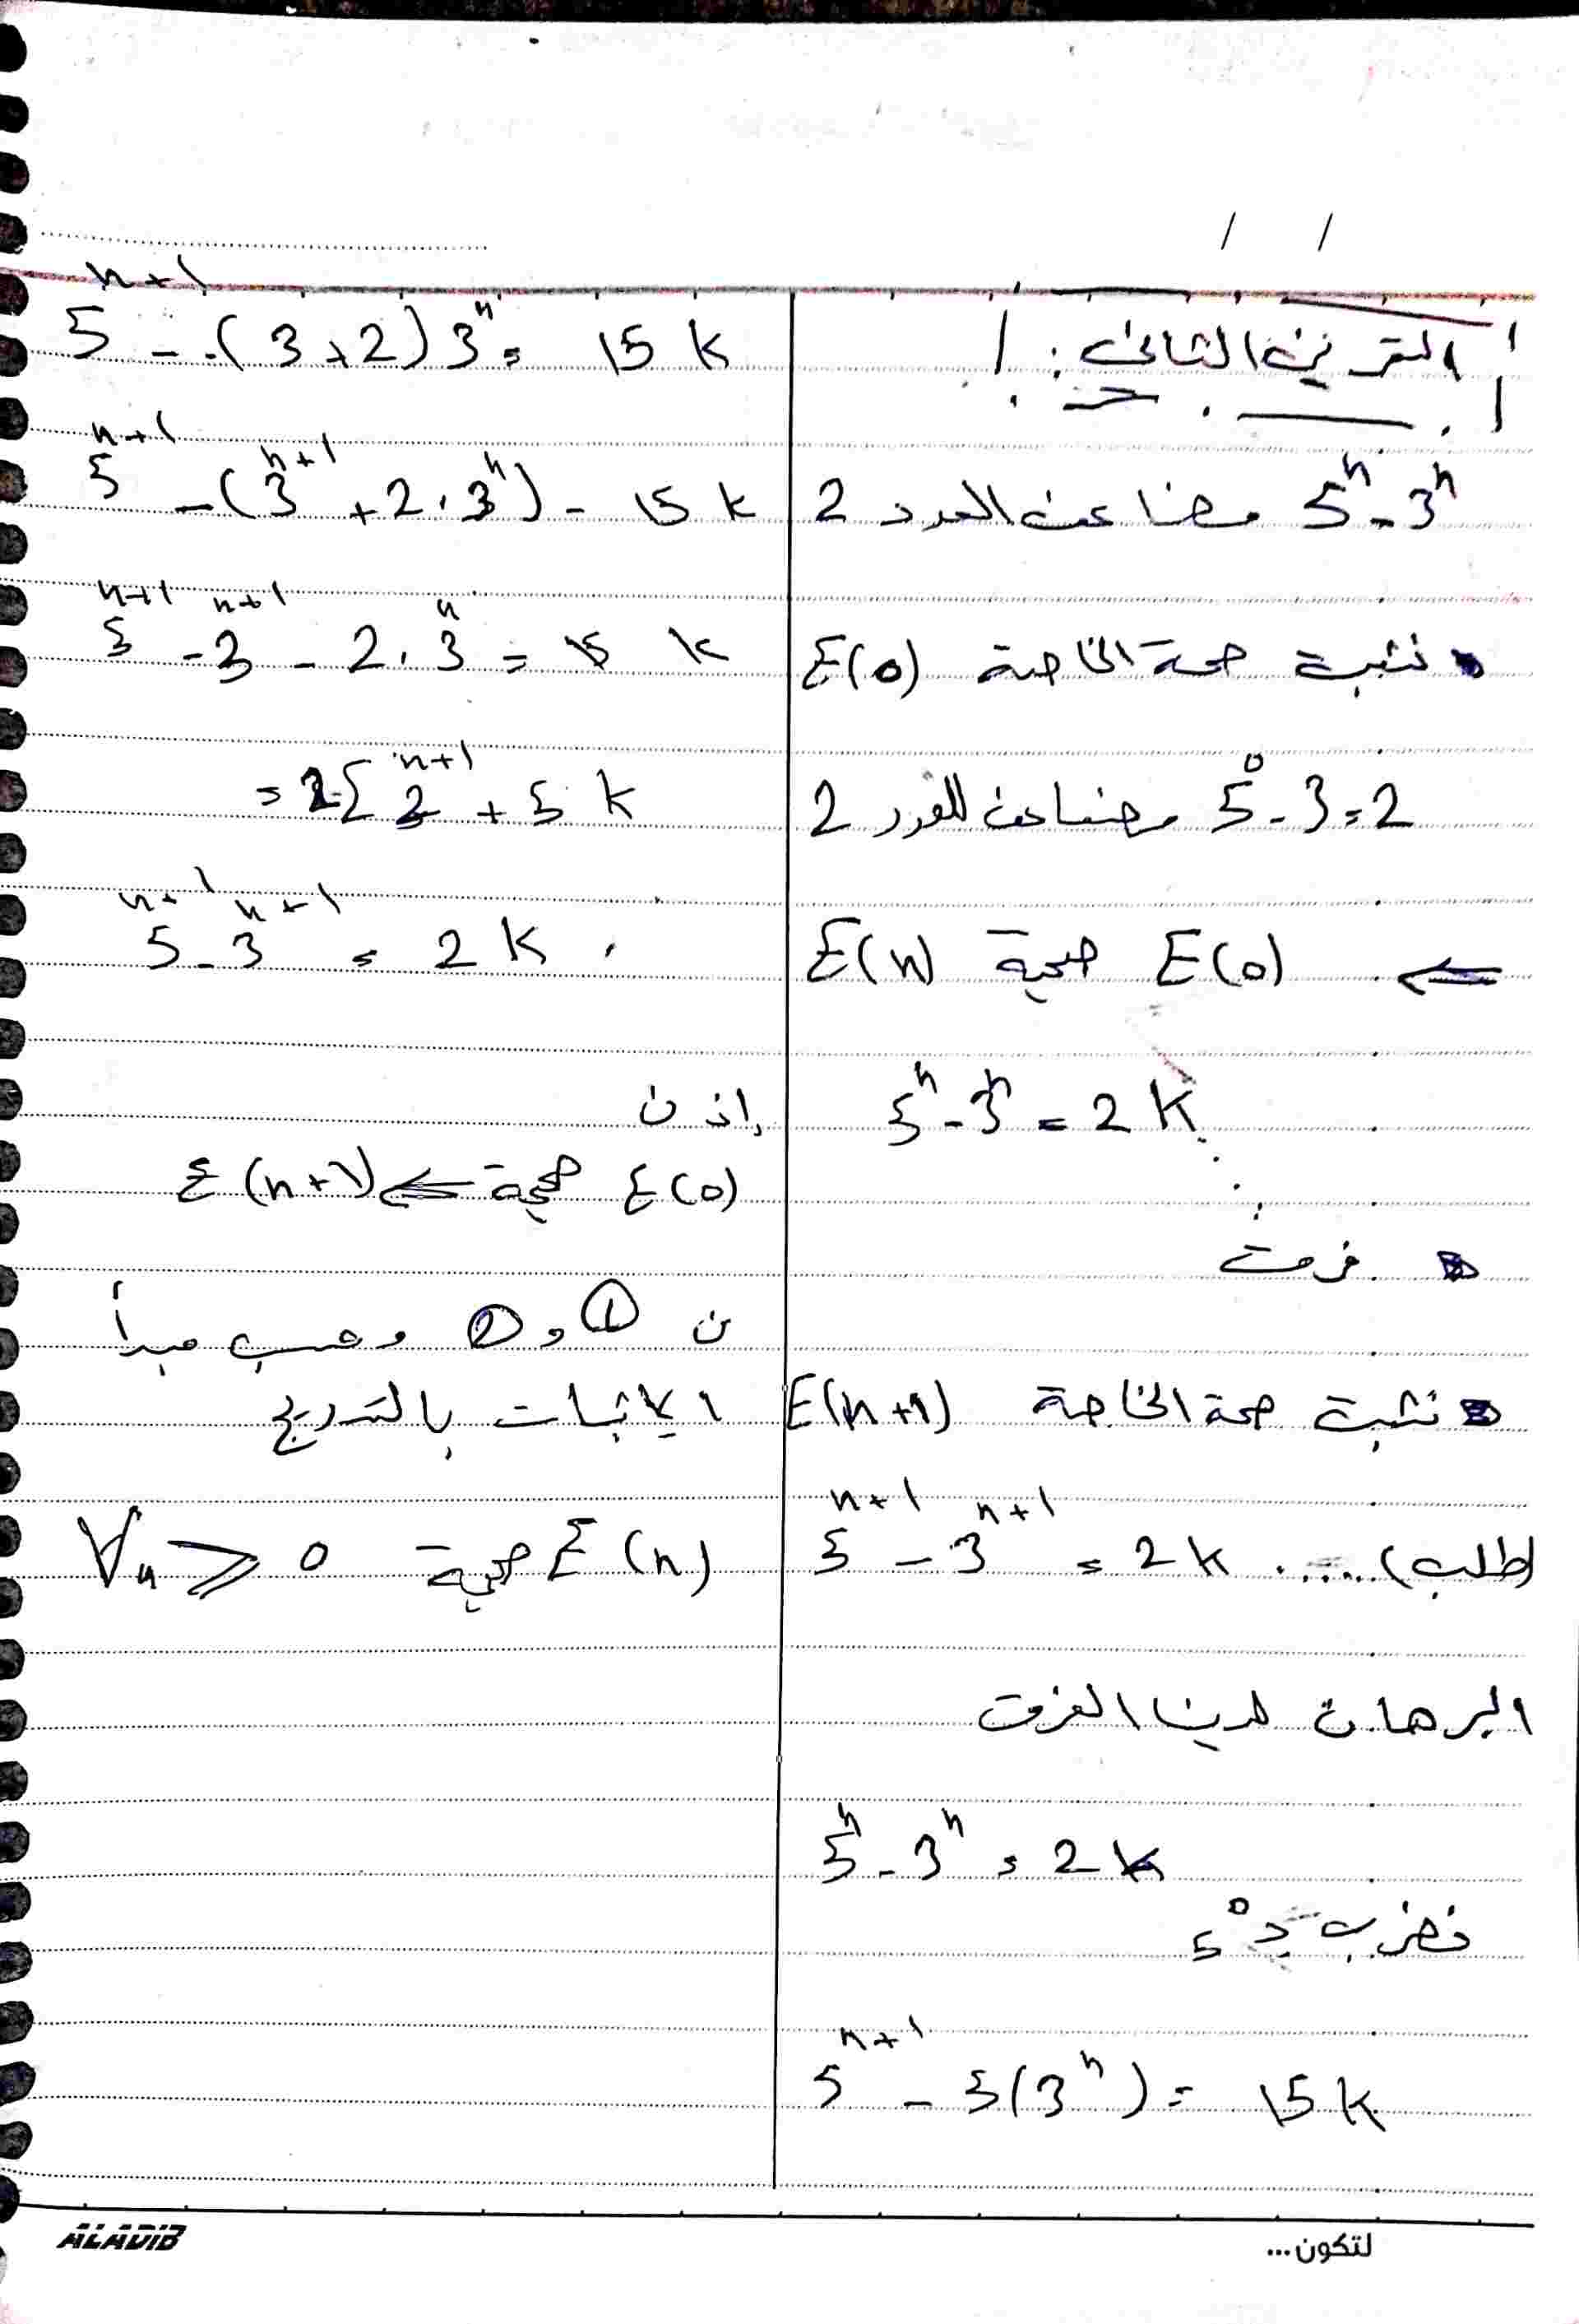 التمرين الثاني:
5ⁿ - 3ⁿ مضاعف العدد 2
نثبت صحة الخاصة E(0)
5⁰ - 3 = 2 مضاعف للعدد 2
⇐ E(0) صحيحة E(n)
5ⁿ - 3ⁿ = 2K
فرض
نثبت صحة الخاصة E(n+1)
5ⁿ⁺¹ - 3ⁿ⁺¹ = 2k ...... (طلب)
البرهان لدينا الفرض
5ⁿ - 3ⁿ = 2k
نضرب بـ 5
5ⁿ⁺¹ - 5(3ⁿ) = 15k
5ⁿ⁺¹ - (3+2)3ⁿ = 15k
5ⁿ⁺¹ - (3ⁿ⁺¹ + 2.3ⁿ) - 15k
5ⁿ⁺¹ - 3ⁿ⁺¹ - 2.3ⁿ = 15 k
= 2[3ⁿ⁺¹ + 5k
5ⁿ⁺¹ - 3ⁿ⁺¹ = 2k
إذن
E(0) صحيحة ⇐ E(n+1)
ن ① و ② وحسب مبدأ
الاثبات بالتدريج
E(n) صحيحة ∀n ⩾ 0
لتكون...
ALADIB